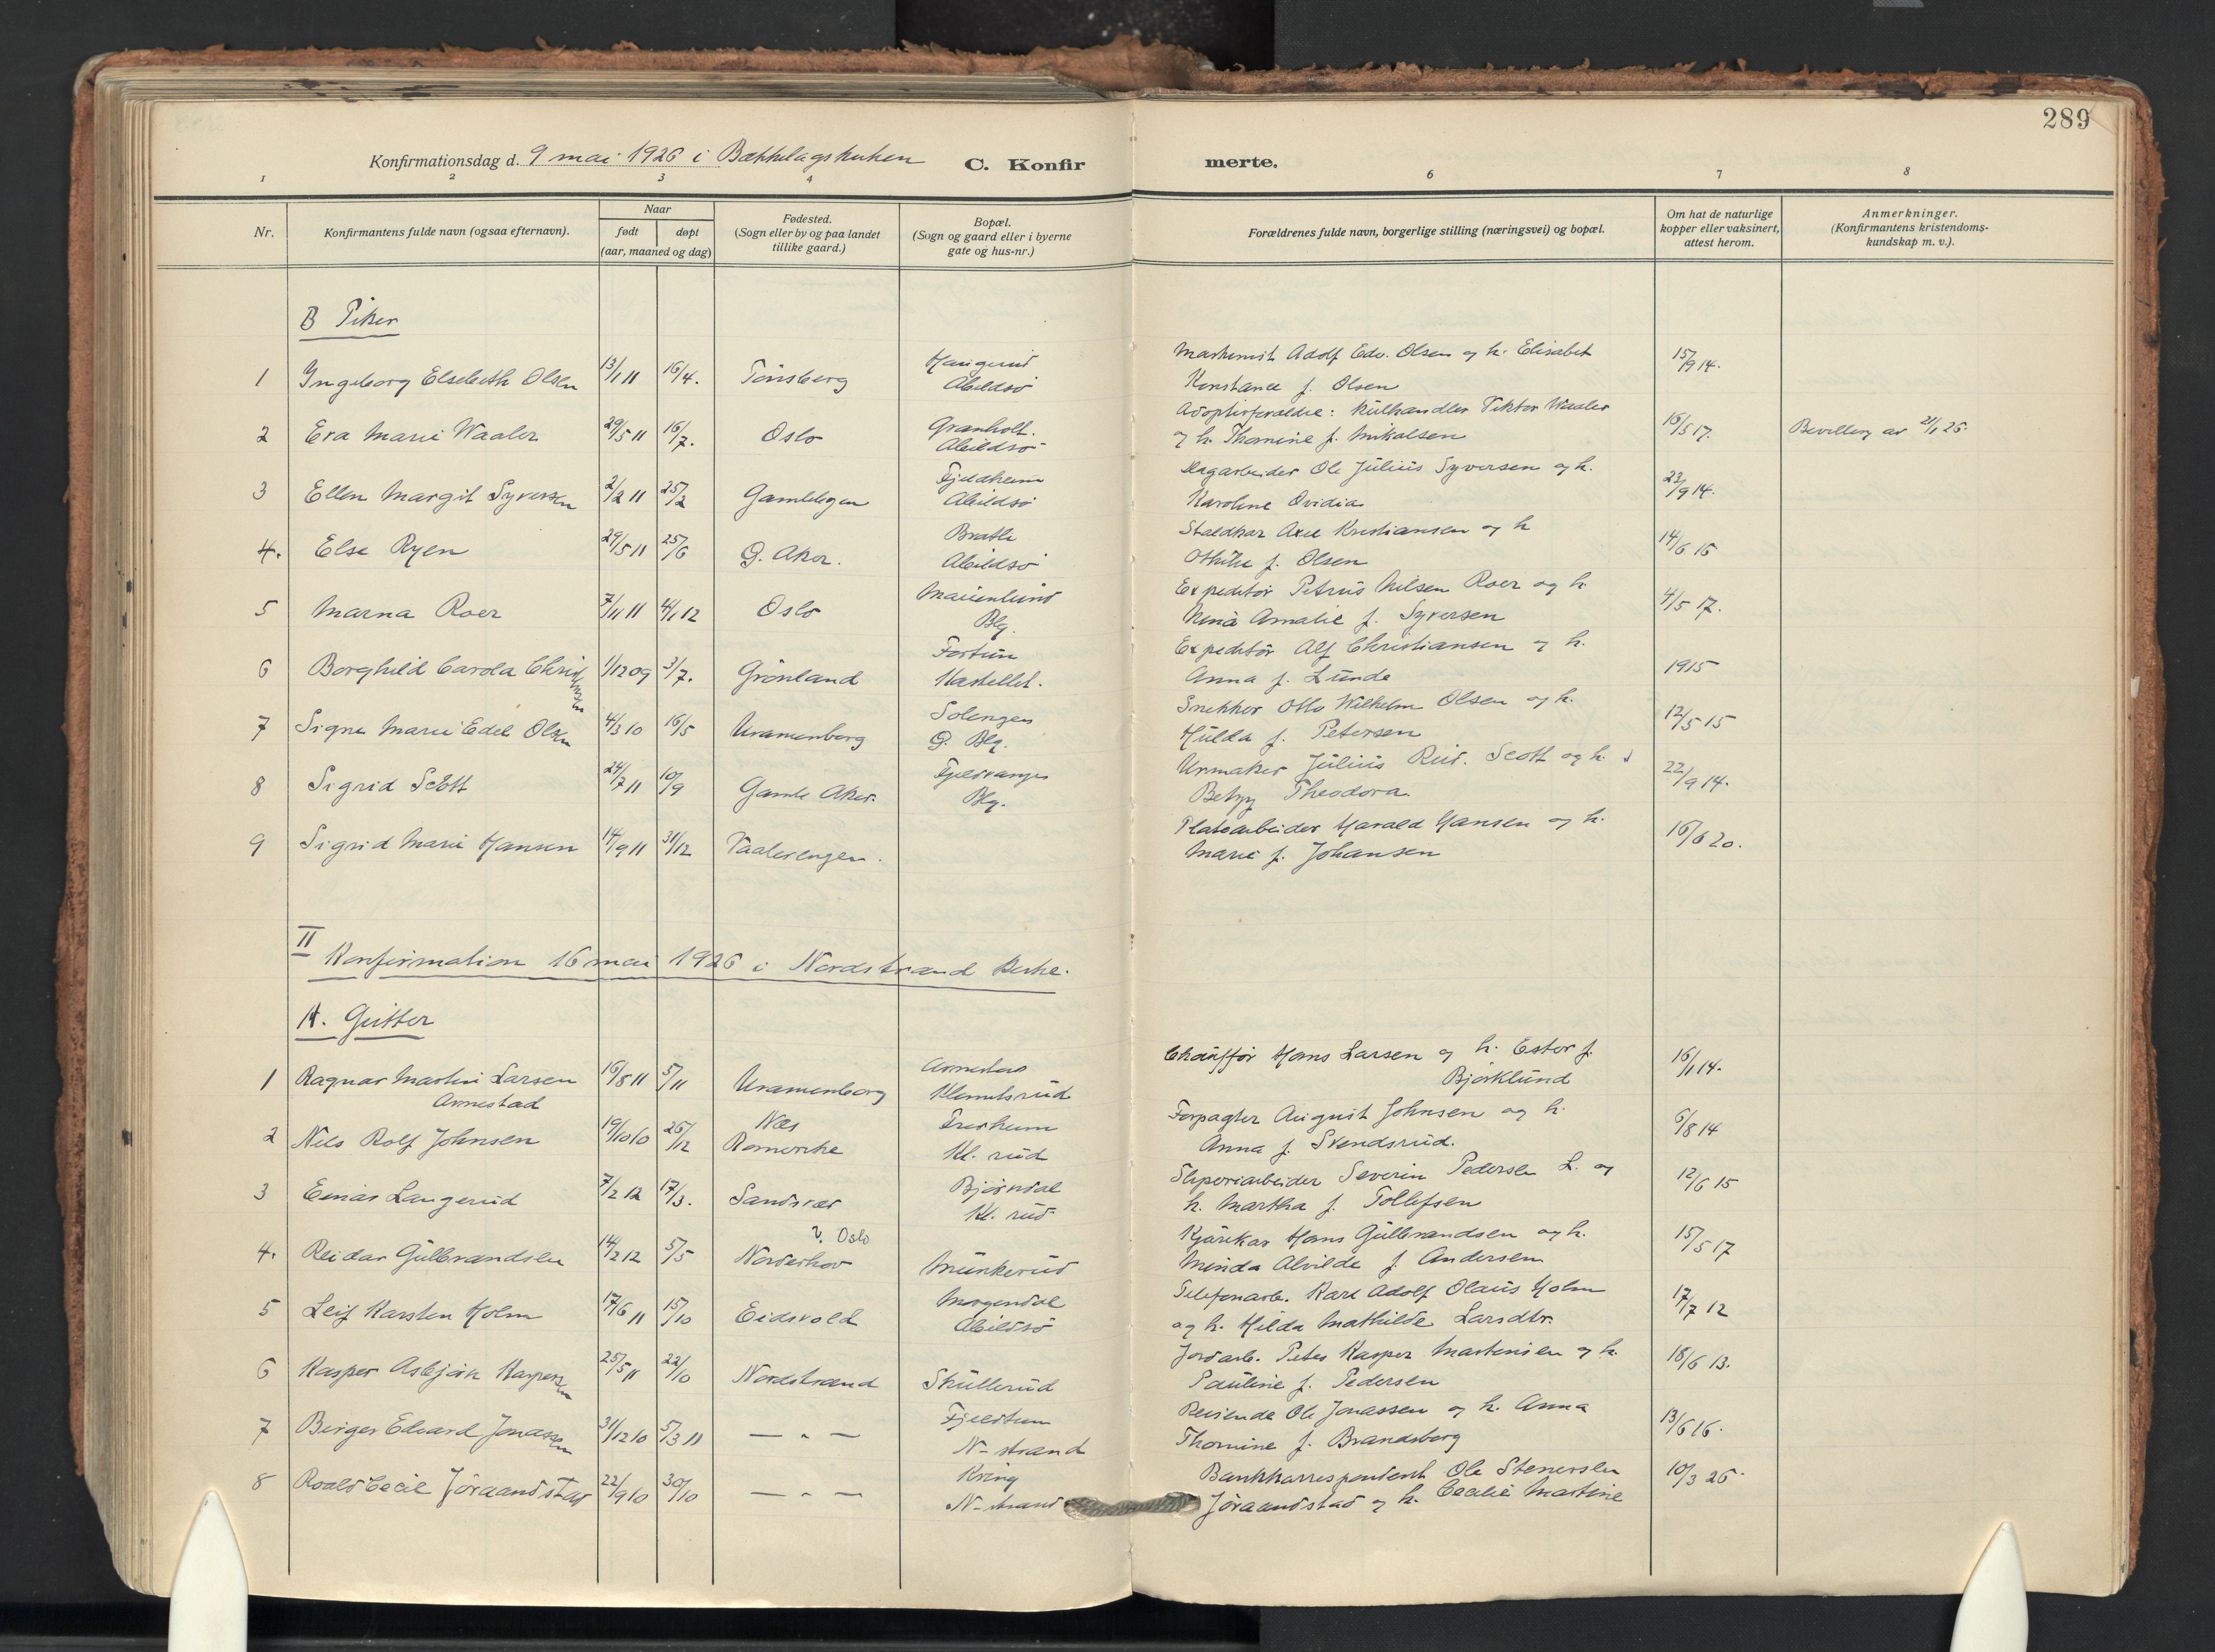 289
Konfirmationsdag d. 9 mai 1926 i Bækkelagskirken
C. Konfirmerte.
1 2 3 4 6 7 8
Nr.
Konfirmantens fulde navn (ogsaa efternavn).
Naar
født døpt
(aar, maaned og dag)
Fødested.
(Sogn eller by og paa landet
tillike gaard.)
Bopæl.
(Sogn og gaard eller i byerne
gate og hus-nr.)
Forældrenes fulde navn, borgerlige stilling (næringsvei) og bopæl.
Om hat de naturlige
kopper eller vaksinert,
attest herom.
Anmerkninger.
(Konfirmantens kristendoms-
kundskap m. v.).
B Piker
1 Ingeborg Elsebeth Olsen 13/1 11 16/4. Tönsberg Haugerud
Abildsö
Maskinist Adolf Edv. Olsen og h. Elisabet
Konstance f. Olsen
15/9 14.
2 Eva Marie Waaler 29/5 11 16/7. Oslo Granholt.
Abildsö
Adoptivforældre: Kulhandler Viktor Waaler
og h. Thomine f. Mikalsen
16/5 17. Bevilling av 21/1 26.
3 Ellen Margit Syversen 2/2 11 25/2 Gamlebyen Fjeldheim
Abildsö
Dagarbeider Ole Julius Syversen og h.
Karoline Ovidia
23/9 14.
4. Else Ryen 29/5 11 25/6 G. Aker. Bratli
Abildsö
Staldkar Axel Kristiansen og h
Othilie f. Olsen
14/6 16
5 Marna Roer 7/11 11 4/1 12 Oslo Marienlund
Blg.
Expeditör Petrus Nilsen Roer og h.
Nina Amalie f. Syversen
4/5 17.
6 Borghild Carola Christiansen 1/12 09 3/7. Grönland Fortun
Kastellet.
Expeditör Alf Christiansen og h.
Anna f. Lunde
1915
7 Signe Marie Edel Olsen 4/3 10 16/5 Uranienborg Solengen
G. Blg.
Snekker Otto Wilhelm Olsen og h.
Hulda f. Petersen
12/5 15
8 Sigrid Scott 24/7 11 10/9 Gamle Aker. Fjeldvangen
Blg.
Urmaker Julius Reid. Scott og h.
Betzy Theodora
22/9 14.
9 Sigrid Marie Hansen 14/9 11 31/12 Vaalerengen.
Platearbeider Harald Hansen og h.
Marie f. Johansen
16/6 20.
II
Konfirmation 16 mai 1926 i Nordstrand Kirke.
A. Gutter
1 Ragnar Martin Larsen
Annestad
16/8 11 5/11 Uranienborg
Klemetsrud
Chauffør Hans Larsen og h. Ester f.
Björklund
16/1 14.
2 Nils Rolf Johnsen 19/10 10 26/12 Næs
Romerike
Kl. rud
Forpagter August Johnsen og h.
Anna f. Svendsrud.
6/8 14
3 Einar Langerud 7/2 12 17/3. Sandsvær Björndal
Kl. rud
Sliperiarbeider Severin Pedersen L. og
h. Martha f. Tollefsen
12/6 15
4. Reidar Gulbrandsen 14/2 12 5/5 v. Oslo
Norderhov Munkerud
Kjörekar Hans Gulbrandsen og h.
Minda Alvilde f. Andersen
15/5 17
5 Leif Karsten Holm 17/6 11 15/10 Eidsvold Morgendal
Abildsö
Telefonarb. Karl Adolf Olaus Holm
og h. Hilda Mathilde Larsdtr.
17/7 12
6 Kasper Asbjörn Kaspersen 25/5 11 22/10 Nordstrand Skullerud
Jordarb. Peter Kasper Martinisen og h.
Pauline f. Pedersen
18/6 13.
7 Birger Edvard Jonassen 31/12 10 5/3 11 — " — Fjeldtun
N-strand
Reisende Ole Jonassen og h. Anna
Thomine f. Brandsberg
13/6 16.
8 Roald Cecil Jöraandstad 22/9 10 30/10 — " — Kring
N-strand
Bankkorrespondent Ole Stenersen
Jöraandstad og h. Cecilie Martine
10/3 26.